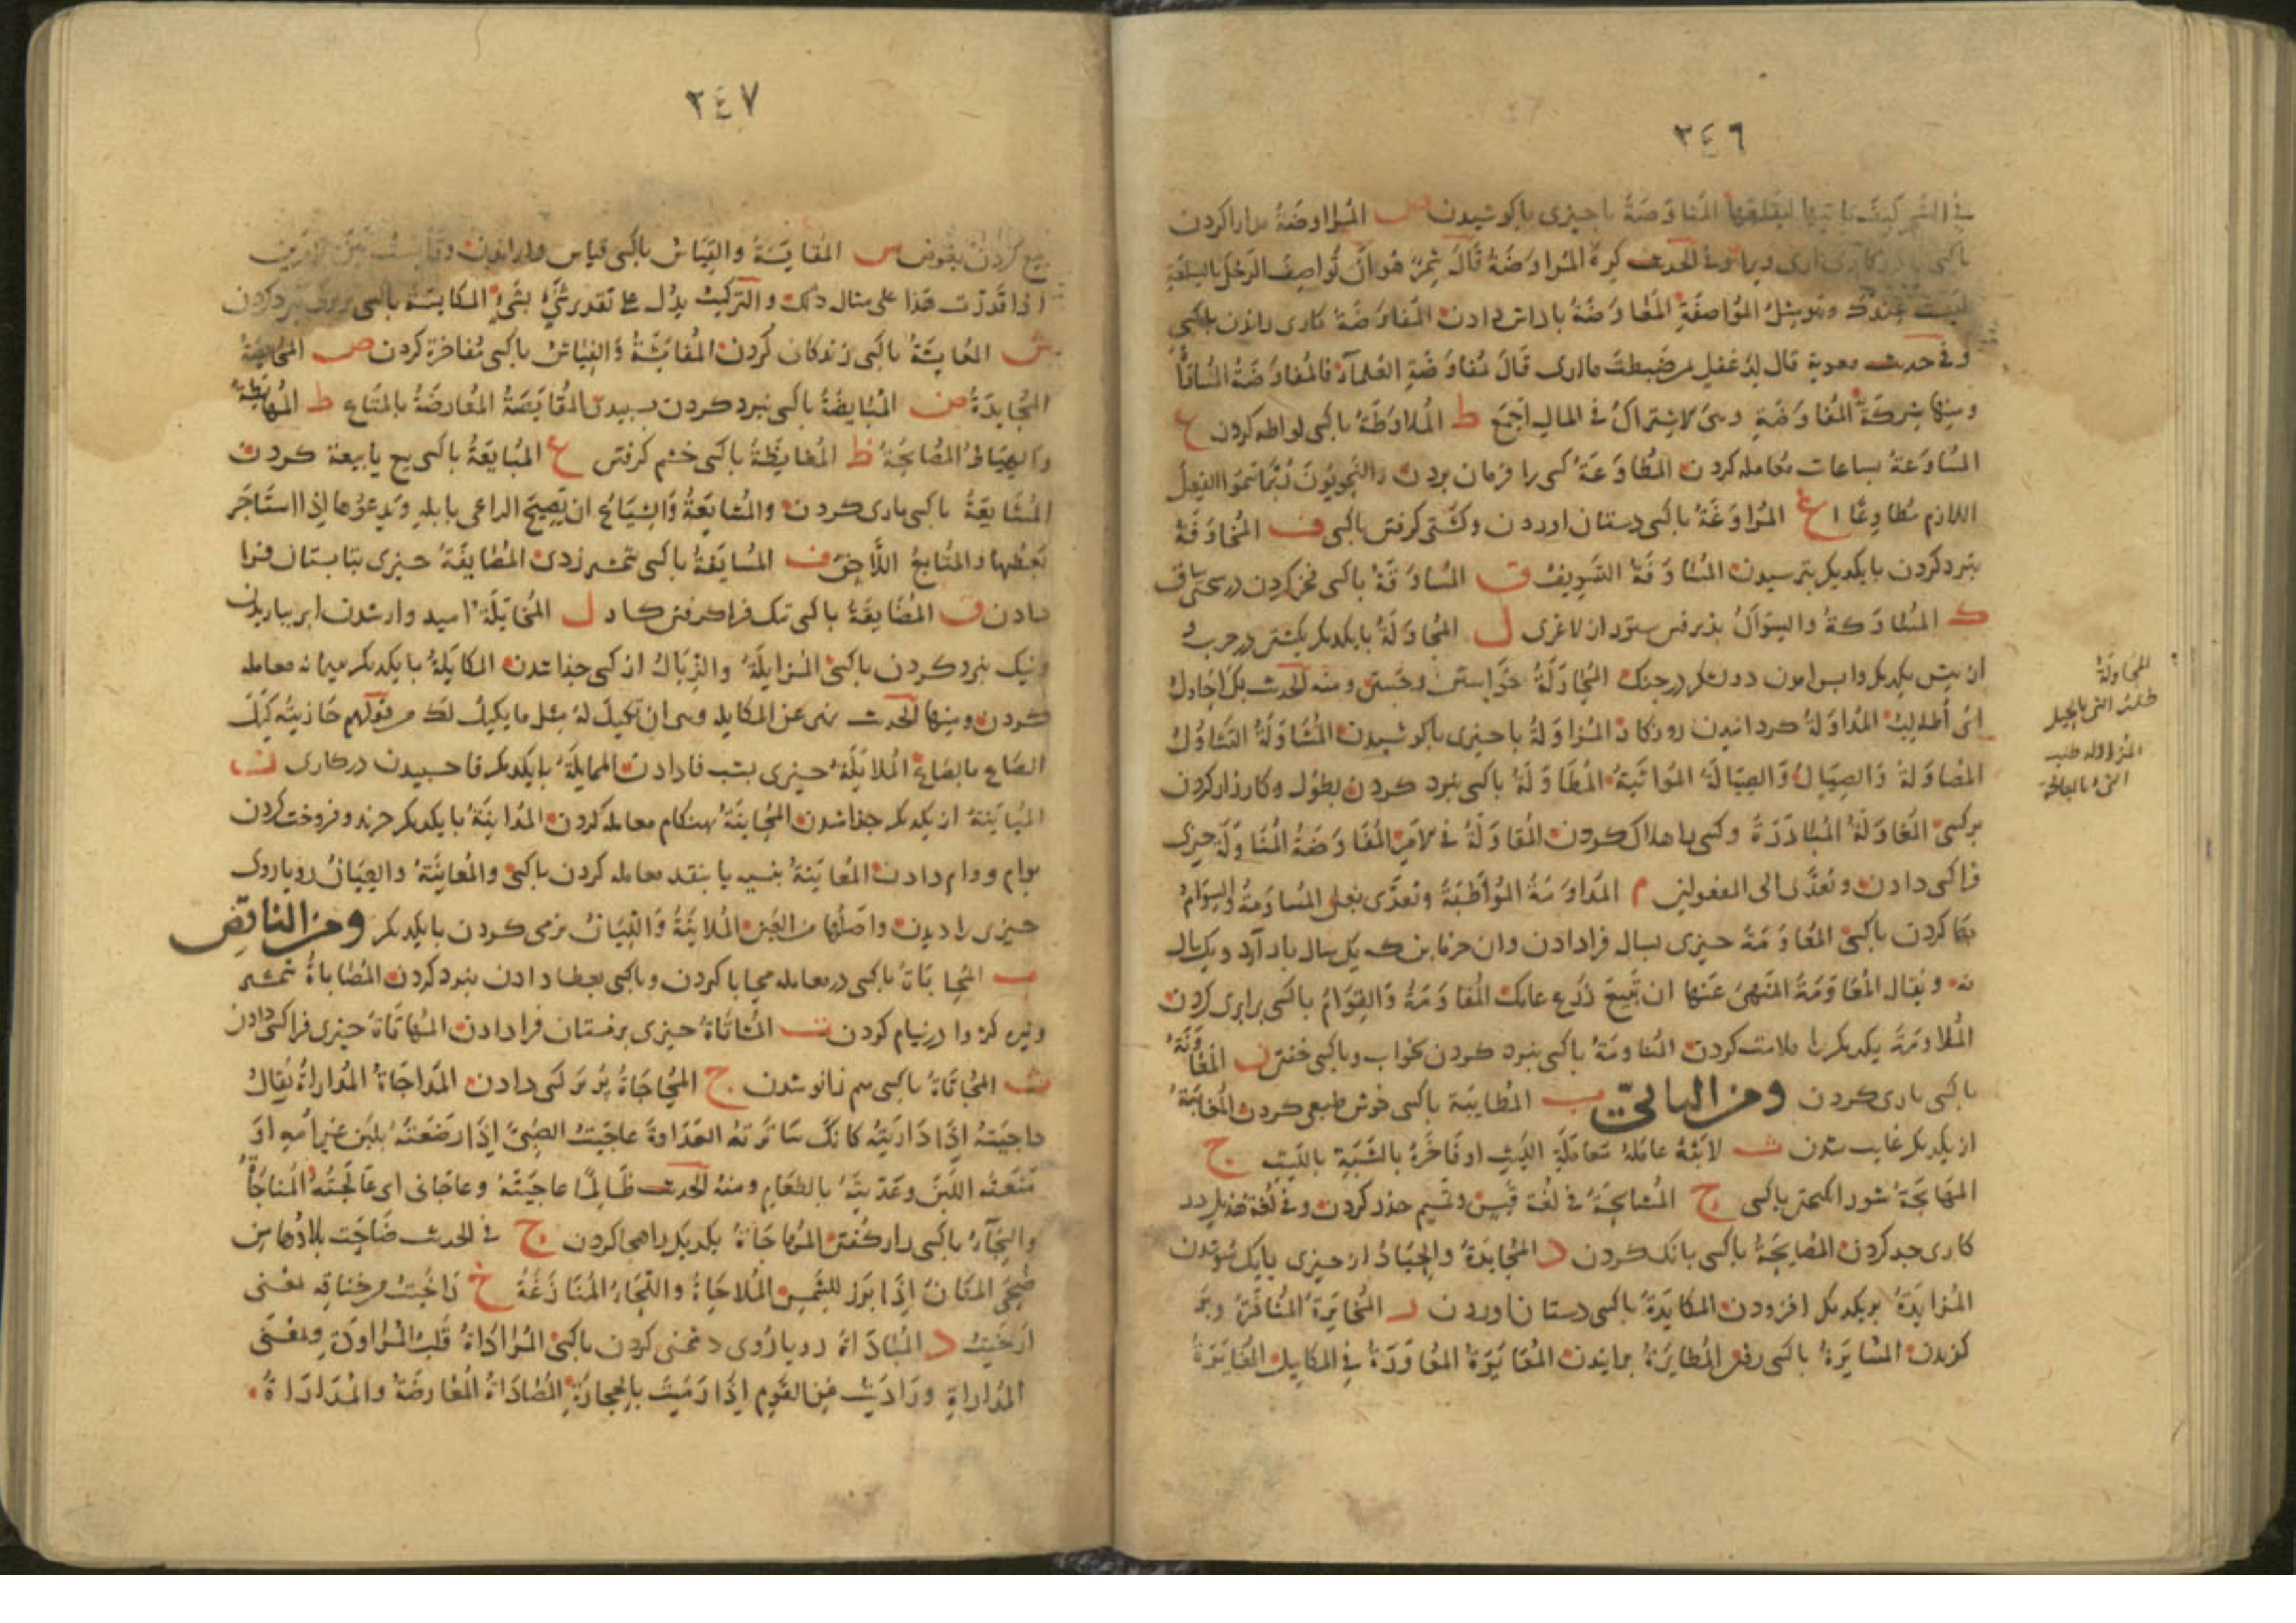 ٢٤٦
المفاوضة باچیزی باکوشیدن ص المراوضة مدارا کردن
الحدیث کره المراوضة قال شمر هو ان تواصف الرجل بالسلعة
لیست عندک وهو مثل المواصفة المفاوضة باداش دادن المفاوضة کاری راندن باکسی
وفی حدیث معویة قال لدغفل بم ضبطت ما اری قال مفاوضة العلماء فالمفاوضة المساواة
ومنها شرکة المفاوضة وهی الاشتراک فی المال اجمع ط الملاوطة باکسی لواطه کردن ع
المساوعة بساعات معامله کردن المطاوعة کسی را فرمان بردن والنحویون ربما سموا الفعل
اللازم مطاوعا غ المراوغة باکسی دستان اوردن وکشتی کرفتن باکسی ف المخاوفة
نبرد کردن بایکدیکر بترسیدن المساوفة التسویف ق المساوقة باکسی فخر کردن
ک المساوکة والسواک ل المجاولة بایکدیکر بکشتن در حرب و
المحاولة خواستن وجستن ومنه الحدیث بک احاول
ای اطالب المداولة کردانیدن روزکار المزاولة باچیزی باکوشیدن المشاولة التشاول
المصاولة والصیال والصیالة المواثبة المطاولة باکسی نبرد کردن بطول وکارزار کردن
برکسی المغاولة المبادرة وکسی را هلاک کردن المقاولة فی الامر المفاوضة المناولة چیزی
فرا کسی دادن وتعدی الی المفعولین م المداومة المواظبة وتعدی بعلی المساومة والسوام
بها کردن باکسی المعاومة چیزی بسال فرادادن وان خرمابن که یک سال بار آرد ویک سال
نه ویقال المعاومة المنهی عنها ان تبیع زرع عامک المقاومة والقوام باکسی برابری کردن
الملاومة یکدیکر را ملامت کردن المناومة باکسی نبرد کردن بخواب وباکسی خفتن ن المعاونة
باکسی یاری کردن ومن الیائی ب المطایبة باکسی خوش طبعی کردن المغایبة
از یکدیکر غایب شدن ث لایثه عامله معاملة اللیث او فاخره بالشبه باللیث ج
المهایجة شور انکیختن باکسی ح المشایحة فی لغة قیس وتمیم حذر کردن وفی لغة هذیل در
کاری جد کردن المصایحة باکسی بانک کردن د المحایدة والحیاد از چیزی بایک سو شدن
المزایدة بر یکدیکر افزودن المکایدة باکسی دستان اوردن ر المخایرة
کزیدن المسایرة باکسی رفتن المطایرة پرانیدن المعایرة المعاورة فی المکاییل المغایرة
المحاولة
طلب الشیء بالحیل
المزاولة طلب
الشیء بالمعالجة
٢٤٧
بیع کردن بعوض س المقایسة والقیاس باکسی قیاس
اذا قدرت هذا علی مثال ذلک والترکیب یدل علی تقدیر شیء بشیء المکایسة باکسی بزیرکی نبرد کردن
ش المعایشة باکسی زندکانی کردن المفایشة والفیاش باکسی مفاخرة کردن ص المحایصة
المحایدة ض المبایضة باکسی نبرد کردن بسپیدی المقایضة المعارضة بالمتاع ط المهایطة
والهیاط المصایحة ظ المغایظة باکسی خشم کرفتن ع المبایعة باکسی بیع یا بیعة کردن
المشایعة باکسی یاری کردن والمشایعة والشیاع ان یصیح الراعی بابله ویدعوها اذا استاخر
بعضها والمتابع اللاحق ف المسایفة باکسی شمشیر زدن المصایفة چیزی بتابستان فرا
دادن ق المضایقة باکسی تنک فرا کرفتن کار ل المخایلة امیدوار شدن ابر بباریدن
ونیک نبرد کردن باکسی المزایلة والزیال از کسی جدا شدن المکایلة بایکدیکر بپیمانه معامله
کردن ومنها الحدیث نهی عن المکایلة وهی ان تکیل له مثل ما یکیل لک من قولهم جازیته کیل
الصاع بالصاع الملایلة چیزی بشب فادادن الممایلة بایکدیکر فاچسبیدن در کاری ن
المباینة از یکدیکر جدا شدن المحاینة بهنکام معامله کردن المداینة بایکدیکر خرید وفروخت کردن
بوام ووام دادن المعاینة بنسیه یا بنقد معامله کردن باکسی والمعاینة والعیان رویاروی
چیزی را دیدن واصلها من العین الملاینة واللیان نرمی کردن بایکدیکر ومن الناقص
ب المحاباة باکسی در معامله محابا کردن وباکسی بعطا دادن نبرد کردن المصاباة شمشیر
ونیزه کژ وا در نیام کردن ت المشاتاة چیزی بزمستان فرادادن المهاتاة چیزی فرا کسی دادن
ث المجاثاة باکسی هم زانو شدن ج المحاجاة بُرد بُرد کسی دادن المداجاة المداراة یقال
داجیته اذا داریته کانک ساترته العداوة عاجیت الصبی اذا ارضعته بلبن غیر امه او
منعته اللبن وغذیته بالطعام ومنه الحدیث عاجیته وعاجانی ای عالجته المناجاة
والنجاء باکسی راز کفتن المهاجاة یکدیکر را هجا کردن ح فی الحدیث ضاحت بلادها من
ضحی المکان اذا برز للشمس الملاحاة واللحاء المنازعة خ راخیت من خناقه بمعنی
ارخیت د المباداة رویاروی دشمنی کردن باکسی المراداة قلب المراودة وبمعنی
المداراة ورادیت عن القوم اذا رمیت بالحجارة المصاداة المعارضة والمداراة